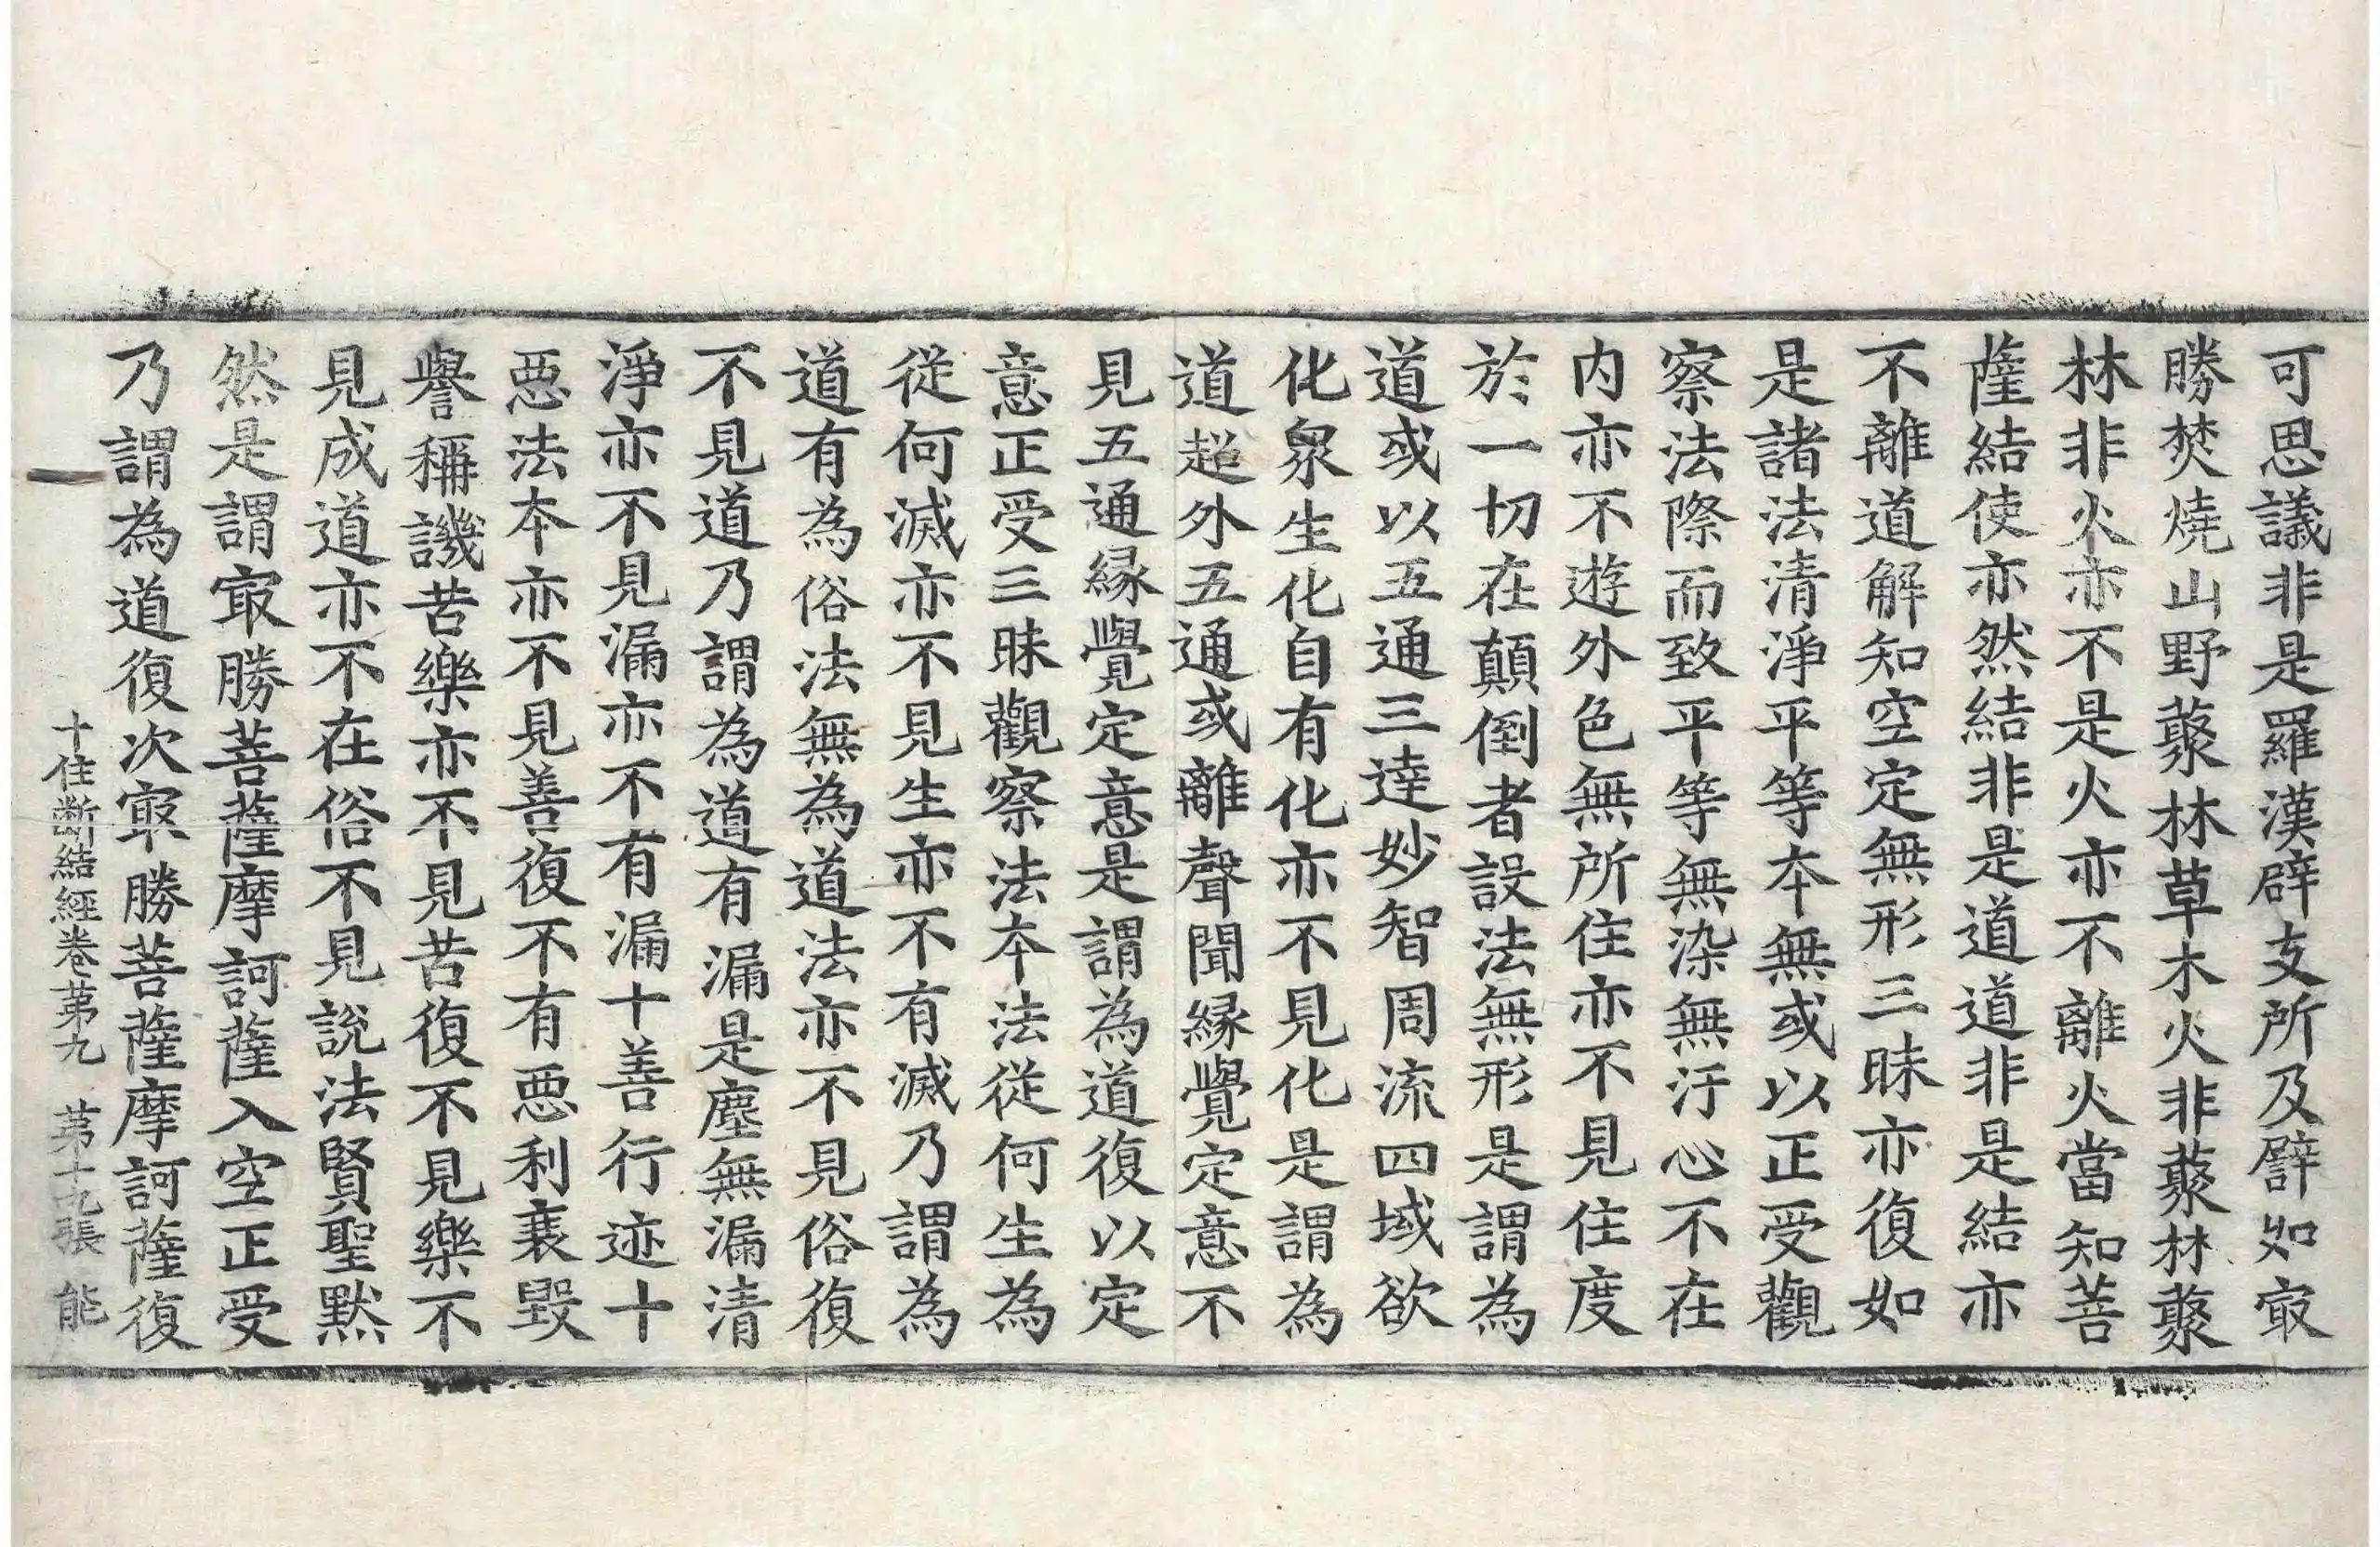 可思議非是羅漢辟支所及譬如冣
勝焚燒山野藂林草木火非藂林藂
林非火亦不是火亦不離火當知菩
薩結使亦然結非是道道非是結亦
不離道解知空定無形三昧亦復如
是諸法清淨平等本無或以正受觀
察法際而致平等無染無汙心不在
内亦不遊外色無所住亦不見住度
於一切在顛倒者設法無形是謂為
道或以五通三達妙智周流四域欲
化衆生化自有化亦不見化是謂為
道超外五通或離聲聞縁覺定意不
見五通縁覺定意是謂為道復以定
意正受三昧觀察法本法從何生為
從何滅亦不見生亦不有滅乃謂為
道有為俗法無為道法亦不見俗復
不見道乃謂為道有漏是塵無漏清
淨亦不見漏亦不有漏十善行迹十
惡法本亦不見善復不有惡利衰毀
譽稱譏苦樂亦不見苦復不見樂不
見成道亦不在俗不見說法賢聖黙
然是謂冣勝菩薩摩訶薩入空正受
乃謂為道復次冣勝菩薩摩訶薩復
十住断結經卷苐九 苐十九張 能